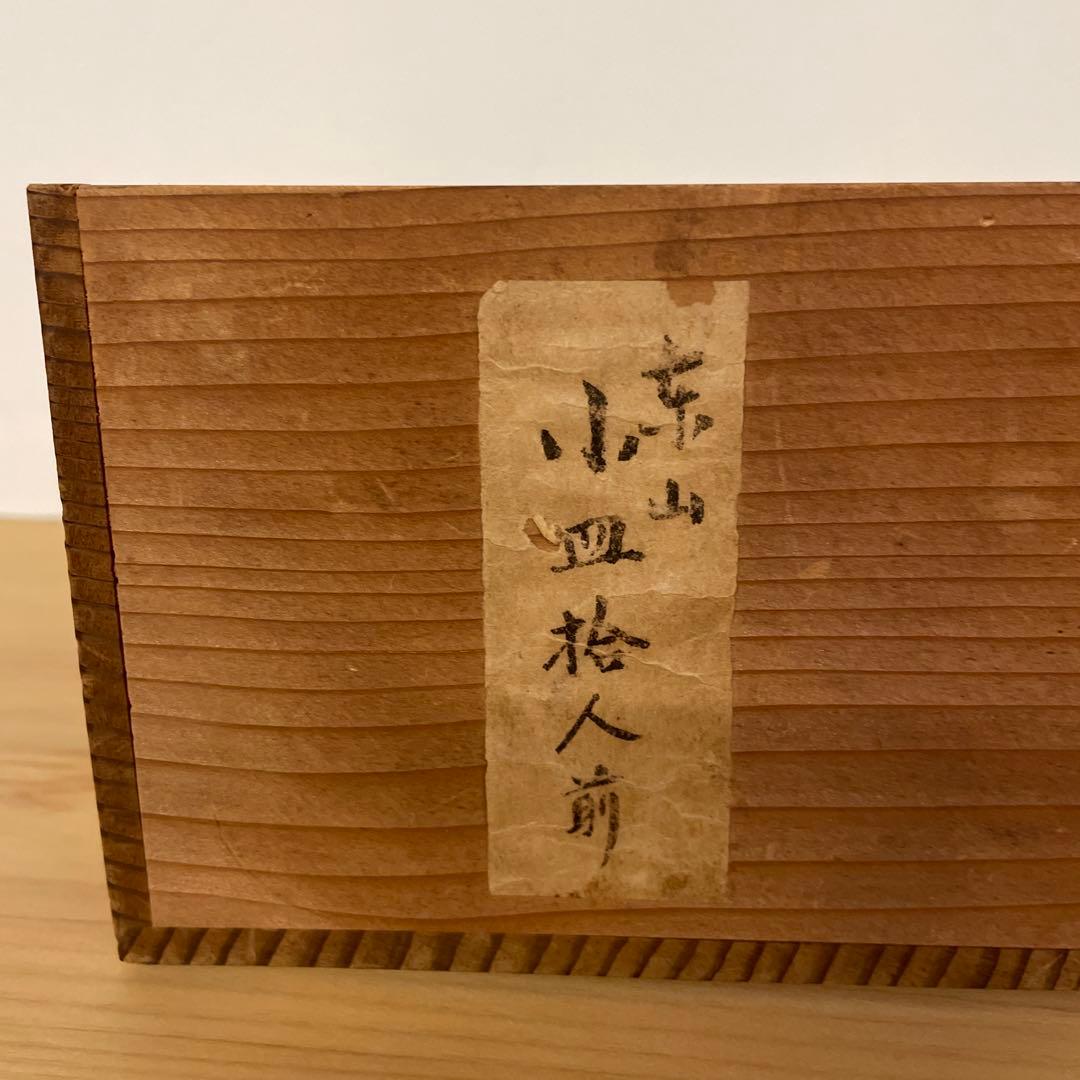 东山
小皿拾人前